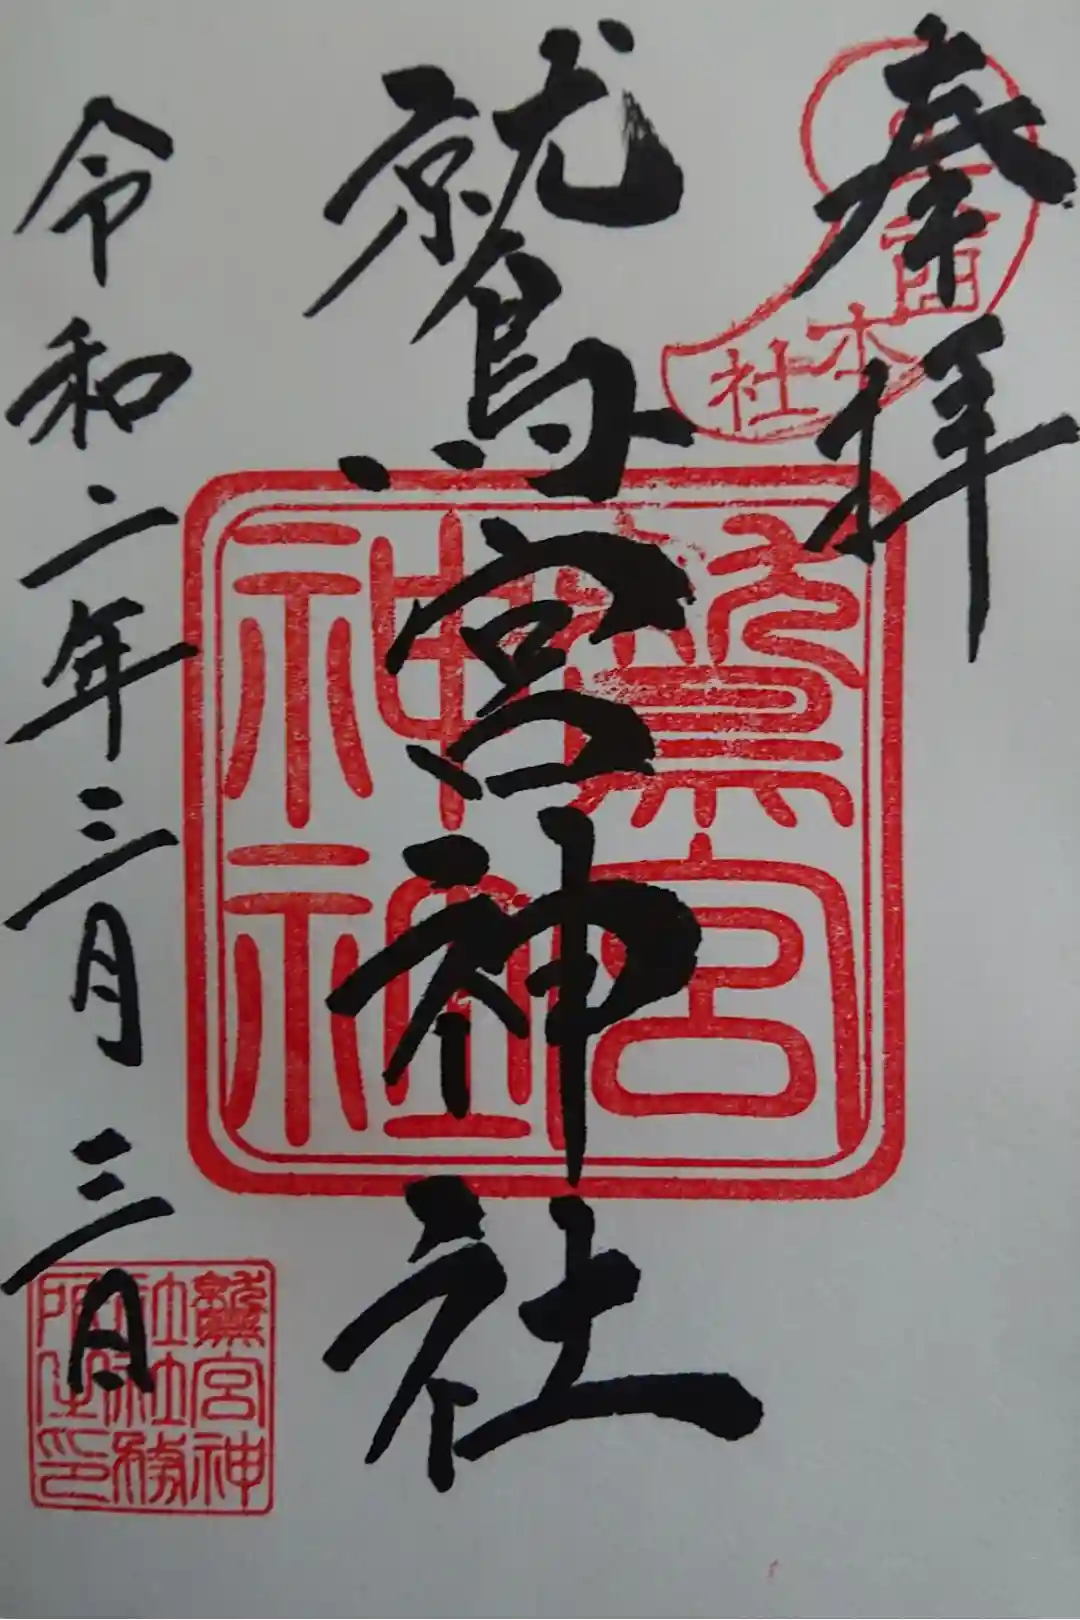 奉拝
酉本社
鷲宮神社
鷲宮
神社
令和二年三月三日
鷲宮神
社社務
所之印